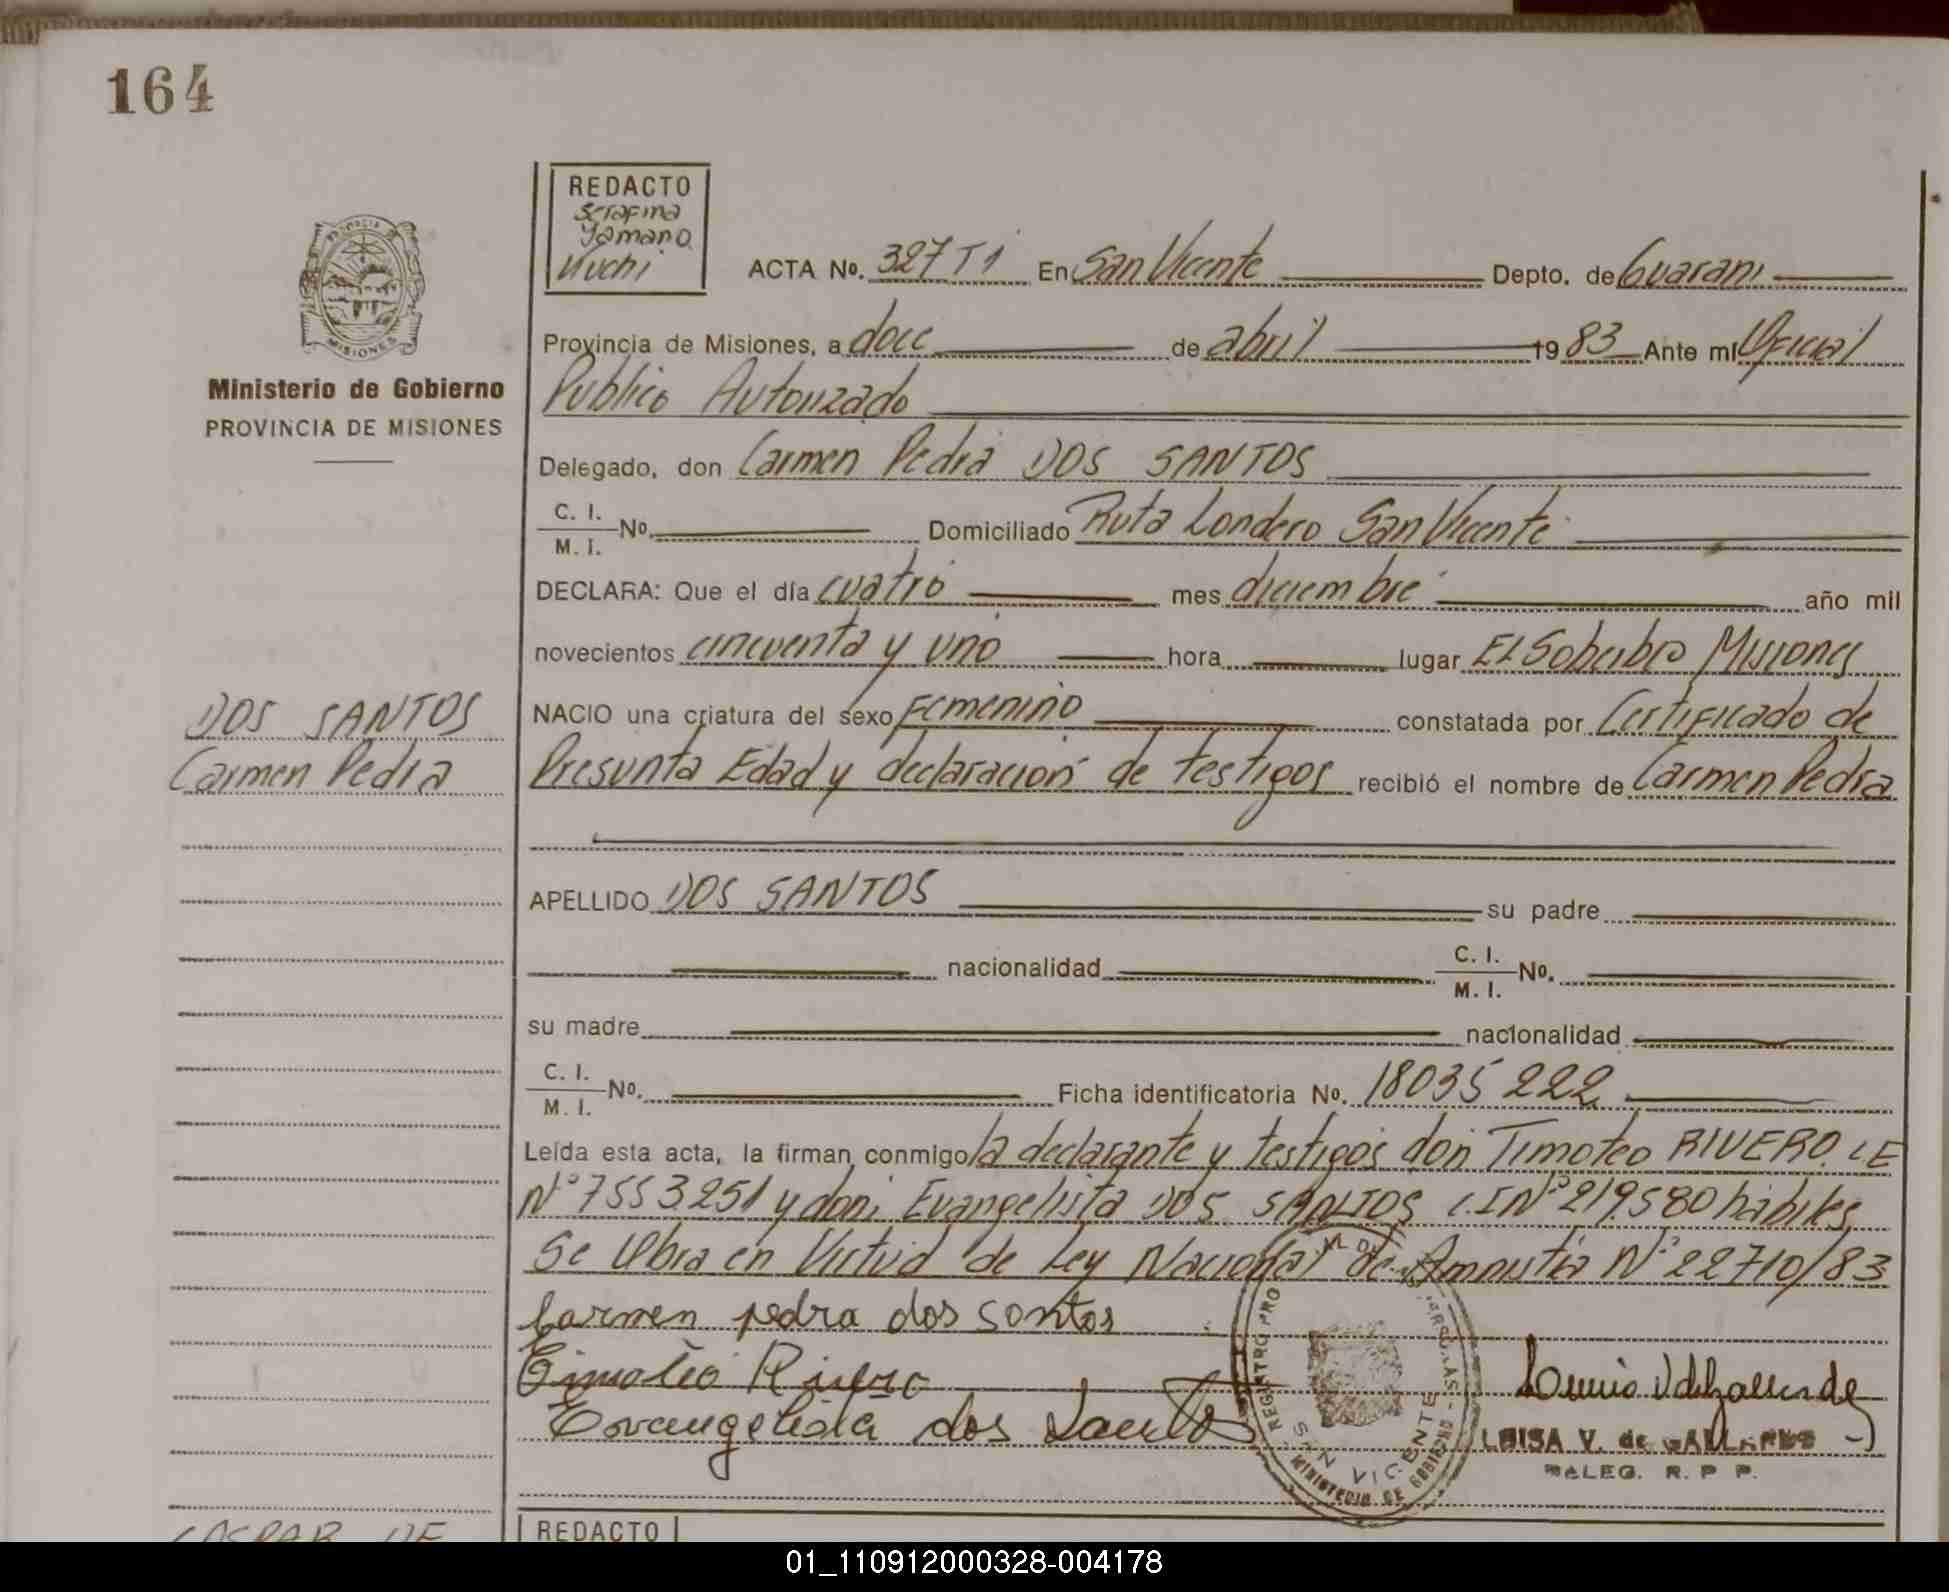 164
REDACTO
Serafina
Yamano
Kuchi
PROVINCIA DE
MISIONES
Ministerio de Gobierno
PROVINCIA DE MISIONES
ACTA No. 327 T1 En San Vicente Depto. de Guarani
Provincia de Misiones, a doce de abril 1983 Ante mi Oficial
Publico Autorizado
Delegado, don Carmen Pedra DOS SANTOS
C. I.
M. I. No. Domiciliado Ruta Londero San Vicente
DECLARA: Que el día cuatro mes diciembre año mil
novecientos cincuenta y uno hora lugar El Soberbio Misiones
DOS SANTOS
Carmen Pedra
NACIO una criatura del sexo Femenino constatada por Certificado de
Presunta Edad y declaracion de testigos recibió el nombre de Carmen Pedra
APELLIDO DOS SANTOS su padre
nacionalidad C. I.
M. I. No.
su madre nacionalidad
C. I.
M. I. No. Ficha identificatoria No. 18035222
Leída esta acta, la firman conmigo la declarante y testigos don Timoteo RIVERO. LE
Nº 7553251 y don Evangelista DOS SANTOS C.I Nº 219580 habiles
Se labra en Virtud de Ley Nacional de Amnistia Nº 22710/83
Carmen pedra dos santos
Timoteo Rivero
Evangelista dos Santos
SAN VICENTE
MINISTERIO DE GOBIERNO
LUISA V. de GALLARDO
DELEG. R. P. P.
REDACTO
01_110912000328-004178